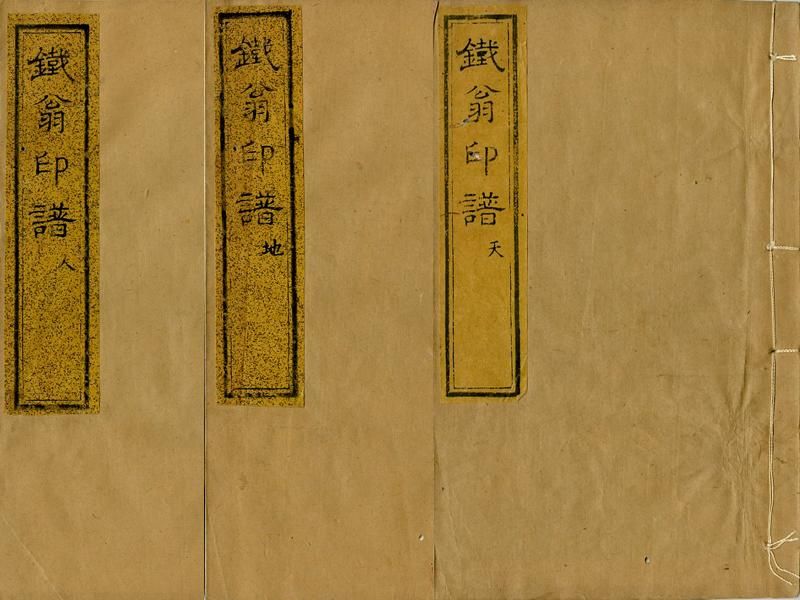 鐵翁印譜 天
鐵翁印譜 地
鐵翁印譜 人